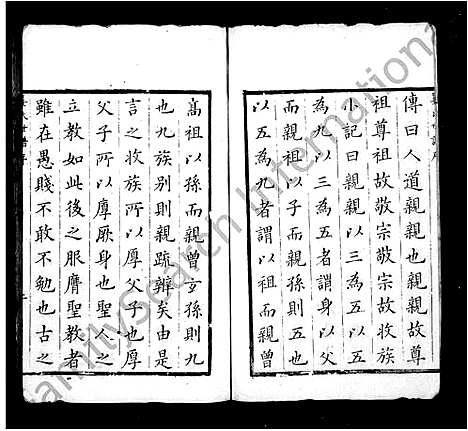 傳曰人道親親也親親故尊
祖尊祖故敬宗敬宗故收族
小記曰親親以三為五以五
為九以三為五者謂身以父
而親祖以子而親孫則五也
以五為九者謂以祖而親曾
高祖以孫而親曾玄孫則九
也九族別則親疏辨矣由是
言之收族所以厚父子也厚
父子所以厚厥身也聖人之
立教如此後之服膺聖教者
雖在愚賤不敢不勉也古之
FamilySearch International